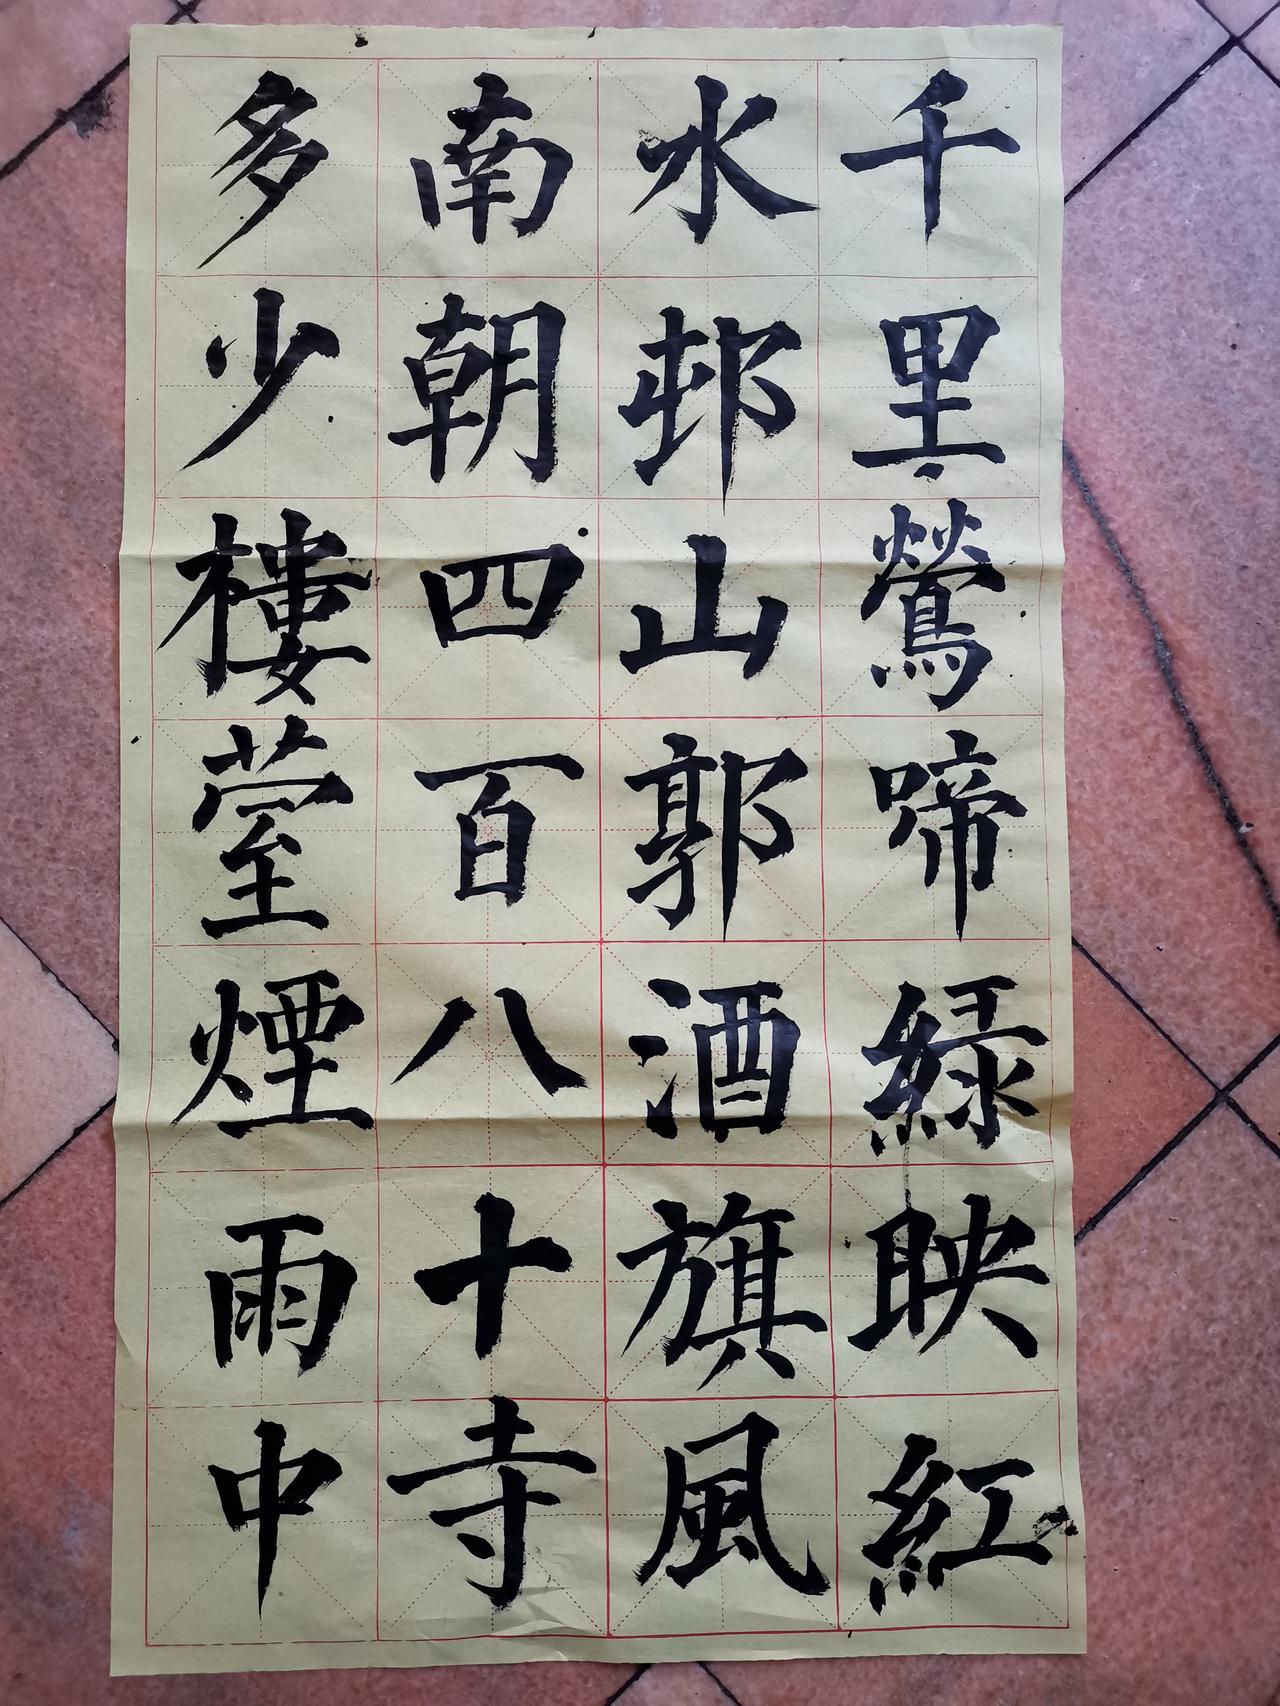 千里鶯啼綠映紅
水邨山郭酒旗風
南朝四百八十寺
多少樓䑓煙雨中